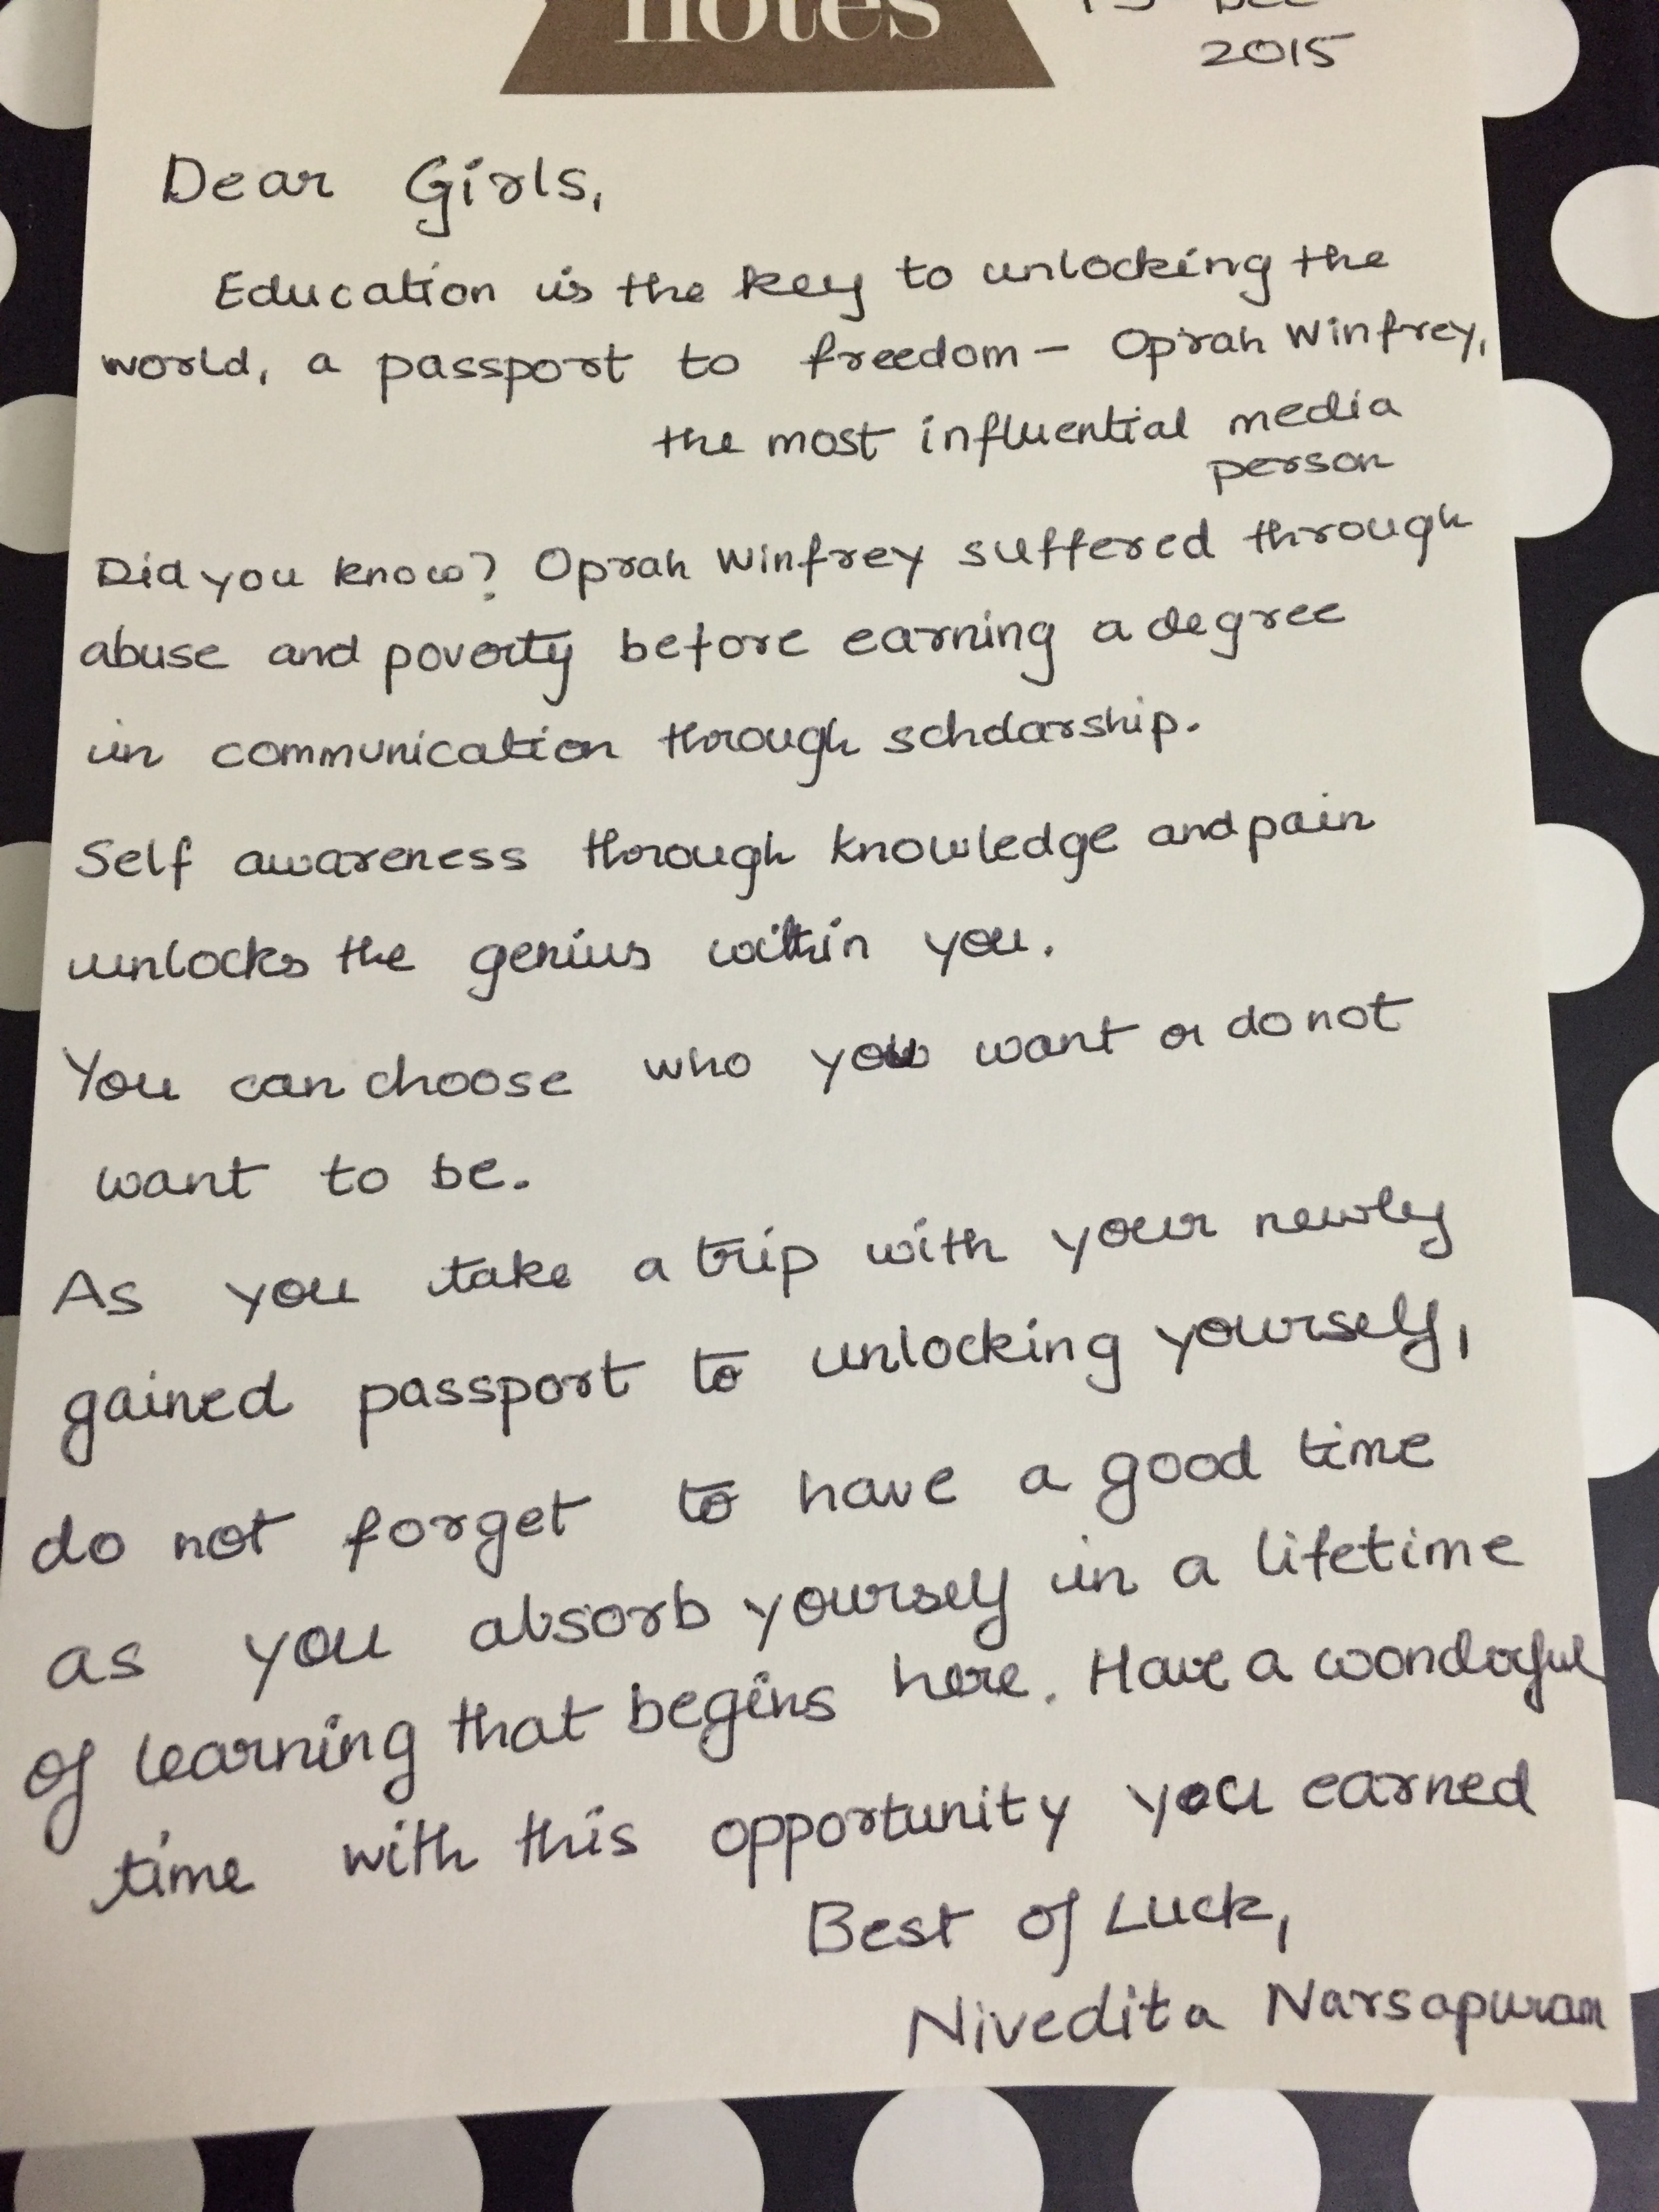 notes
Dec
2015
Dear Girls,
Education is the key to unlocking the
world, a passport to freedom - Oprah Winfrey,
the most influential media
person
Did you know? Oprah Winfrey suffered through
abuse and poverty before earning a degree
in communication through scholarship.
Self awareness through knowledge and pain
unlocks the genius within you.
You can choose who you want or do not
want to be.
As you take a trip with your newly
gained passport to unlocking yourself,
do not forget to have a good time
as you absorb yourself in a lifetime
of learning that begins here. Have a wonderful
time with this opportunity you earned
Best of Luck,
Nivedita Narsapuram